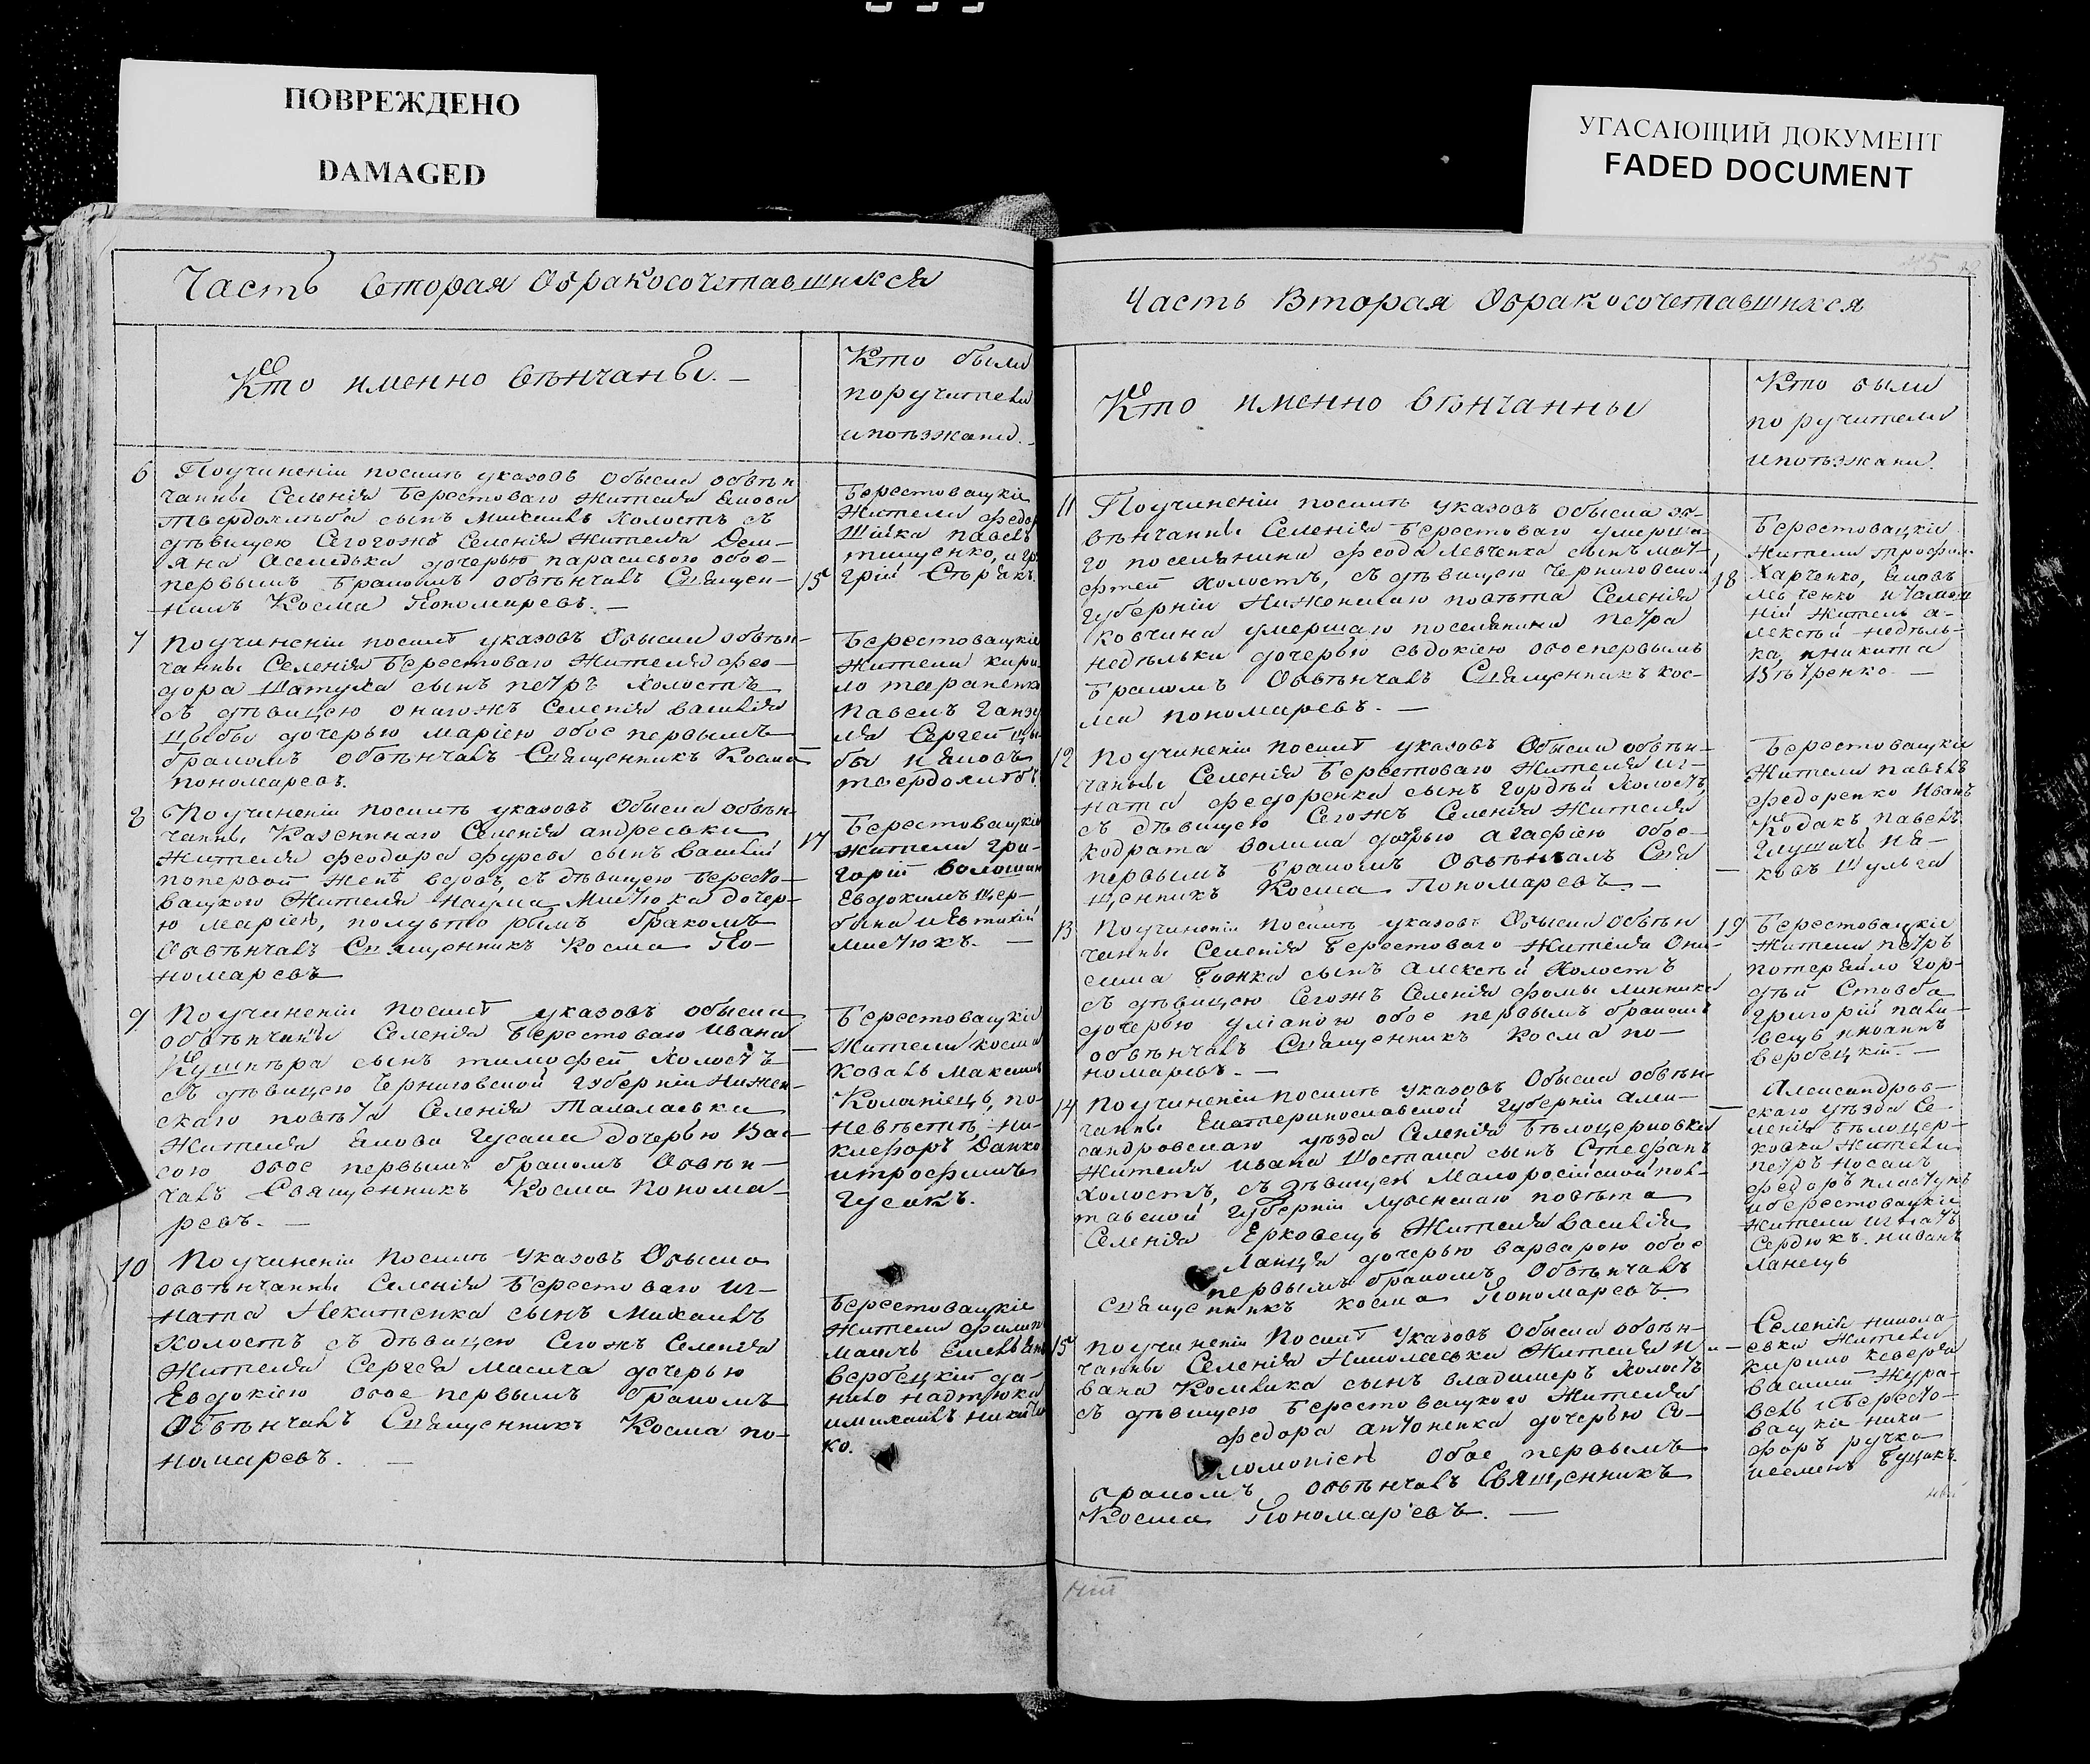 ПОВРЕЖДЕНО
DAMAGED
УГАСАЮЩИЙ ДОКУМЕНТ
FADED DOCUMENT
Часть вторая Обракосочетавшихся
Кто именно вѣнчаны. —
Кто были
поручители
ипоѣзжани.
6 Поучиненіи посилѣ указовъ обыска обвѣн
чанны Селенія Берестоваго жителя Якова
Твердохлѣба сынъ Михаилъ холостъ съ
дѣвицею Сегогожъ Селенія жителя Дем-
яна дочерью параскевою обое-
первымъ бракомъ обвѣнчалъ Священ-
никъ Косма Пономаревъ. —
15
Берестовацкіе
Жители федор
Шійка павелъ
тищенко, и гри
грій
7 поучиненіи посилѣ указовъ Обыска обвѣн-
чанны Селенія Берестоваго жителя фео-
дора Шатуха сынъ петръ холостъ
съ дѣвицею оногожъ Селенія василія
Цыбы дочерью маріею обое первымъ
бракомъ обвѣнчалъ Священникъ Косма —
пономаревъ.
Берестовацкіе
жители кири
ло тараненко
павелъ
ля Сергей Цы
ба и яковъ
твердохлѣбъ
8 Поучиненіи посилѣ указовъ Обыска обвѣн
чанны Казеннаго Селенія андреевки
жителя феодора фурсы сынъ василій
попервой женѣ вдовъ, съ дѣвицею Бересто-
вацкого жителя Наума дочер-
ю маріею, полувторымъ бракомъ
Обвѣнчалъ Священникъ Косма По-
номаревъ
17
Берестовацкіе
жители гри-
горій волошин
Евдокимъ Щер-
бина и Евтихій
9 Поучиненіи посилѣ указовъ обыска
обвѣнчаны Селенія Берестоваго ивана
Кушнѣра сынъ тимофей холостъ —
съ дѣвицею Черниговской губерніи нижен-
скаго повѣта Селенія Талалаевки
жителя якова гусака дочерью Вас-
сою обое первымъ бракомъ Обвѣн-
чалъ Священникъ Косма Понома-
ревъ. —
Берестовацкіе
жители косма
Коваль Максимъ
Коломіецъ, по-
кифоръ Данко
итрофимъ
гусакъ.
10 Поучиненіи посилѣ указовъ Обыска
обвѣнчанны Селенія Берестоваго иг-
ната Некитенка сынъ Михаилъ
холостъ съ дѣвицею Сегожъ Селенія
жителя Сергея дочерью
Евдокіею обое первымъ бракомъ
Обвѣнчалъ Священникъ Косма по-
номаревъ. —
Берестовацкіе
жители филип
вербецкій да-
нило
имихаилъ
ко.
Часть Вторая Обракосочетавшихся
Кто именно вѣнчанны
Кто были
поручители
ипоѣзжани.
11 Поучиненіи посилѣ указовъ обыска об-
вѣнчанны Селенія Берестоваго умерша-
го поселянина феода Левченка сынъ мат-
фтей холостъ, съ дѣвицею Черниговской
губерніи Ниженскаго повѣта Селенія
ковчина умершаго поселянина петра
недѣльки дочерью евдокіею обоепервымъ
бракомъ Обвѣнчалъ Священникъ кос-
ма пономаревъ. —
18
Берестовацкіе
жители трофим
Харченко, яковъ
левченко
ній житель а-
лексѣй недѣль-
ка, иникита
Вѣтренко. —
12 Поучиненіи посилѣ указовъ Обыска обвѣн-
чанны Селенія Берестоваго жителя иг-
ната федоренка сынъ гордѣй холостъ,
съ дѣвицею Сегожъ Селенія жителя
кодрата волика дочерью агафіею обое-
первымъ бракомъ Обвѣнчалъ Свя —
щенникъ Косма Пономаревъ —
Берестовацкіе
жители павелъ
федоренко Иванъ
Кодакъ павелъ
Глущакъ ия-
ковъ Шульга
13 Поучиненіи посилѣ указовъ Обыска обвѣн
чанны Селенія Берестоваго жителя Они-
сима Божка сынъ Алексѣй холостъ
съ дѣвицею Сегожъ Селенія фомы линника
дочерью уліаною обое первымъ бракомъ
обвѣнчалъ Священникъ Косма по-
номаревъ. —
19
Берестовацкіе
жители петръ
потеряйло гор-
дѣй Стовба
григорій
иванъ
вербецкій. —
14 поучиненіи посилѣ указовъ Обыска обвѣн-
чанны Екатеринославской губерніи алек-
сандровскаго уѣзда Селенія Бѣлоцерковки
жителя ивана Шостака сынъ Стефанъ
холостъ, съ дѣвицей Малоросійской пол-
тавской губерніи Лубенскаго повѣта
Селенія Ерковецъ жителя василія
Ланця дочерью варварою обое
первымъ бракомъ Обвѣнчалъ
Священникъ косма Пономаревъ.
Александров-
скаго уѣзда Се-
ленія Бѣлоцер-
ковки жители
петръ носакъ
федоръ пластунъ
иберестовацкіе
жители игнатъ
Сердюкъ. ииванъ
Ланецъ
15 поучиненіи Посилѣ Указовъ Обыска обвѣн-
чанны Селенія Николаевки жителя и-
вана сынъ владимеръ холостъ
съ дѣвицею берестовацкого жителя
федора антоненка дочерью Со-
ломоніей Обое первымъ
бракомъ, обвѣнчалъ Священникъ
Косма Пономаревъ. —
Селенія никола-
евки жители
кирило каверда
василій жура-
вель иБересто-
вацкіе ники-
форъ ручка
исеменъ Буцыкъ.